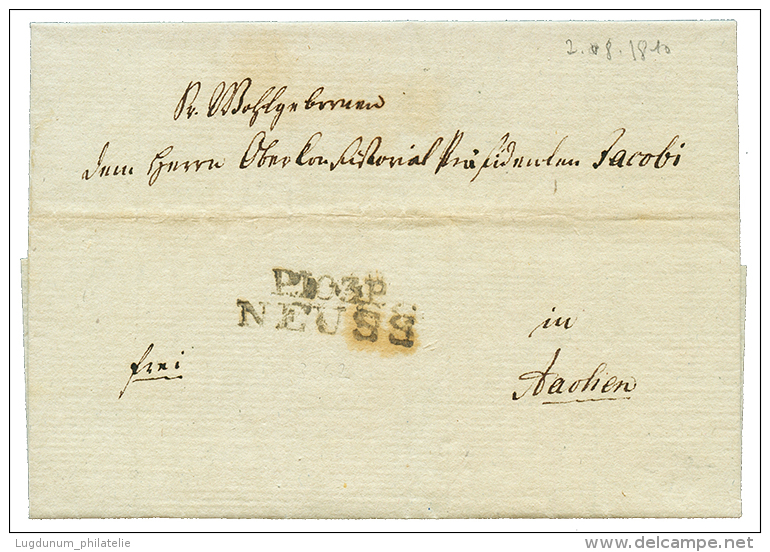 2. 8. 1810
Sr. Wohlgebornen
dem Herrn Oberkonsistorial Präsidenten Jacobi
P.103.P.
NEUSS
in
frei
Aachen
Lugdunum_philatelie
delcampe.net